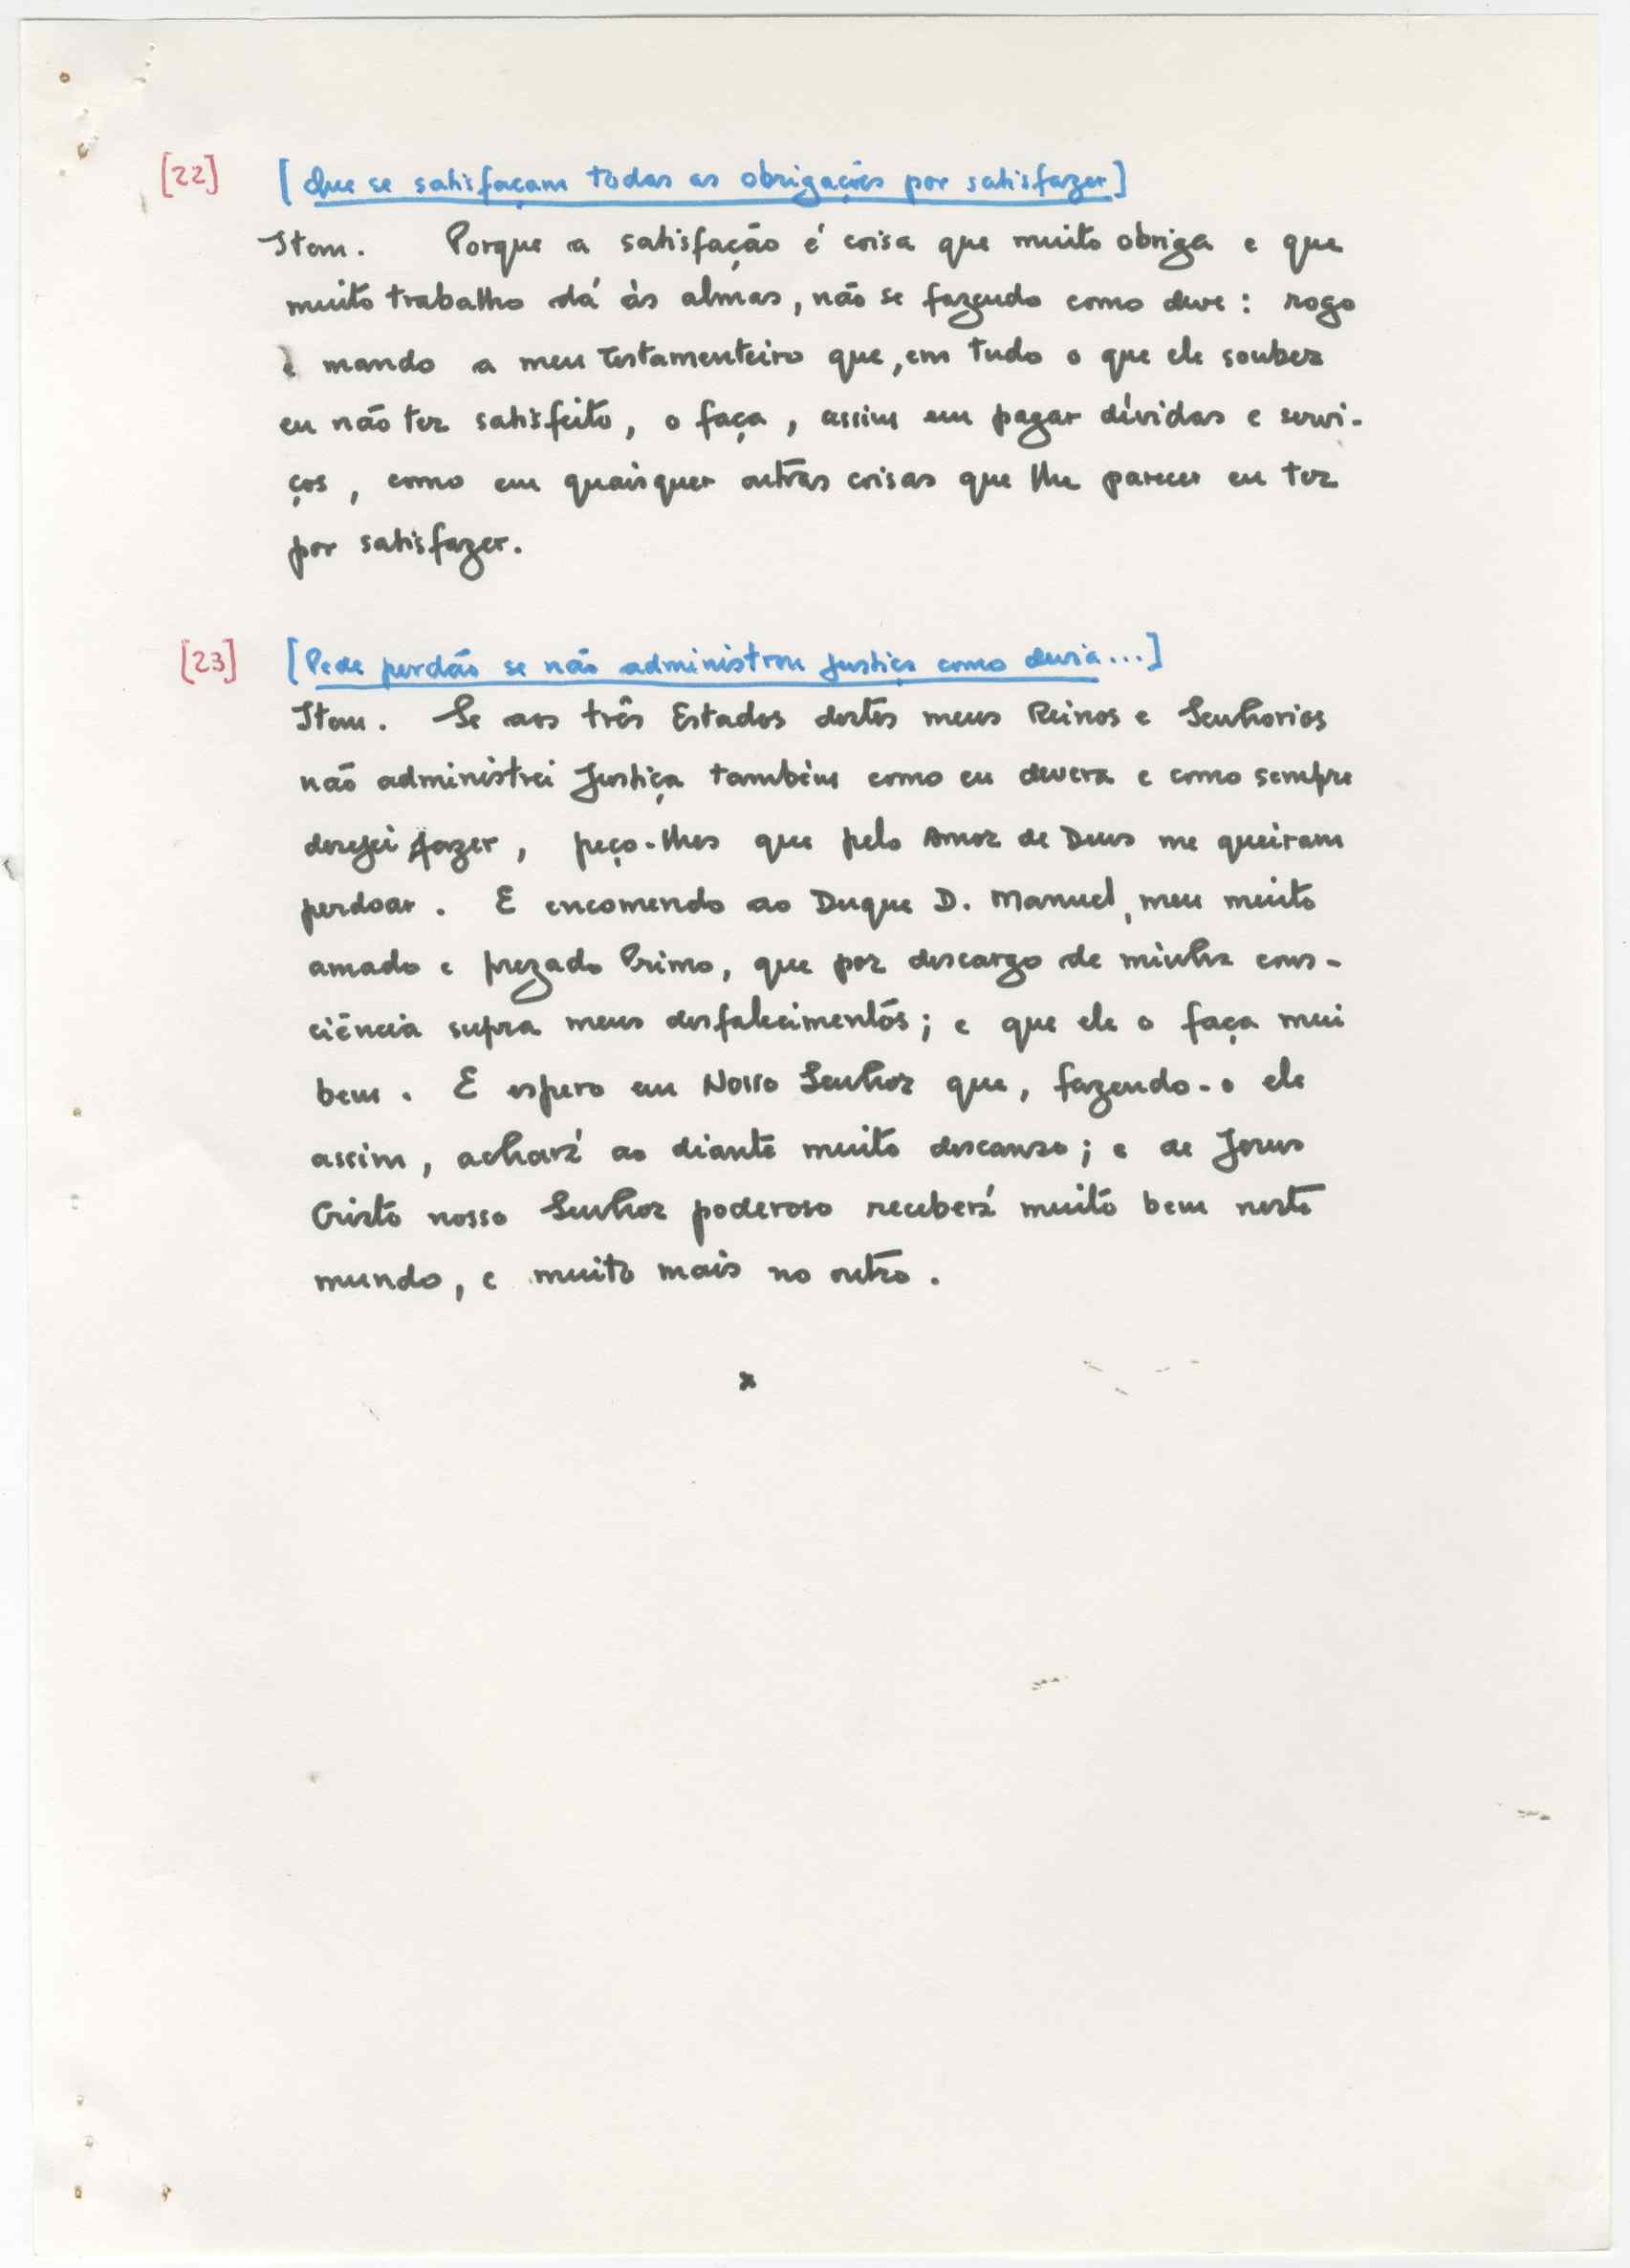 [22] [Que se satisfaçam todas as obrigações por satisfazer]
Item. Porque a satisfação é coisa que muito obriga e que
muito trabalho dá às almas, não se fazendo como deve: rogo
e mando a meu testamenteiro que, em tudo o que ele souber
eu não ter satisfeito, o faça, assim em pagar dívidas e servi-
ços, como em quaisquer outras coisas que lhe parecer eu ter
por satisfazer.
[23] [Pede perdão se não administrou Justiça como devia...]
Item. Se aos três Estados destes meus Reinos e Senhorios
não administrei Justiça também como eu devera e como sempre
desejei fazer, peço-lhes que pelo Amor de Deus me queiram
perdoar. E encomendo ao Duque D. Manuel, meu muito
amado e prezado Primo, que por descargo de minha cons-
ciência supra meus desfalecimentos; e que ele o faça mui
bem. E espero em Nosso Senhor que, fazendo-o ele
assim, achará ao diante muito descanso; e de Jesus
Cristo nosso Senhor poderoso receberá muito bem neste
mundo, e muito mais no outro.
x